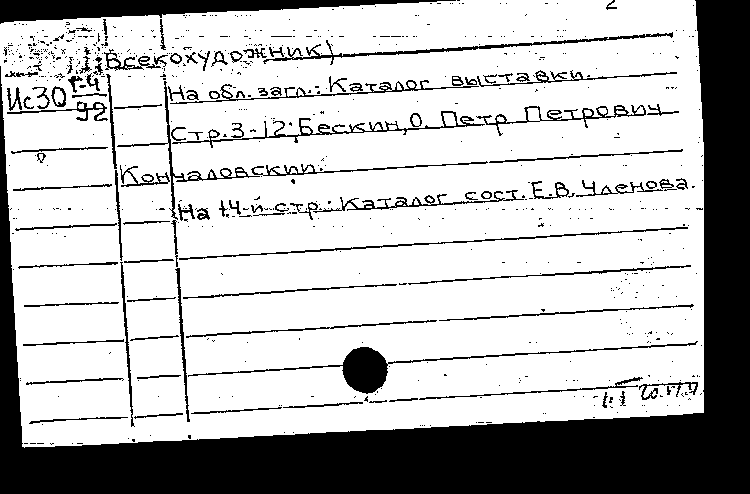 2
Всекохудожник)
Ис30 Г-4/92
На обл. загл.: Каталог выставки.
Стр. 3-12: Бескин, О. Петр Петрович
Кончаловский.
На 14-й стр.: Каталог сост. Е.В. Членова.